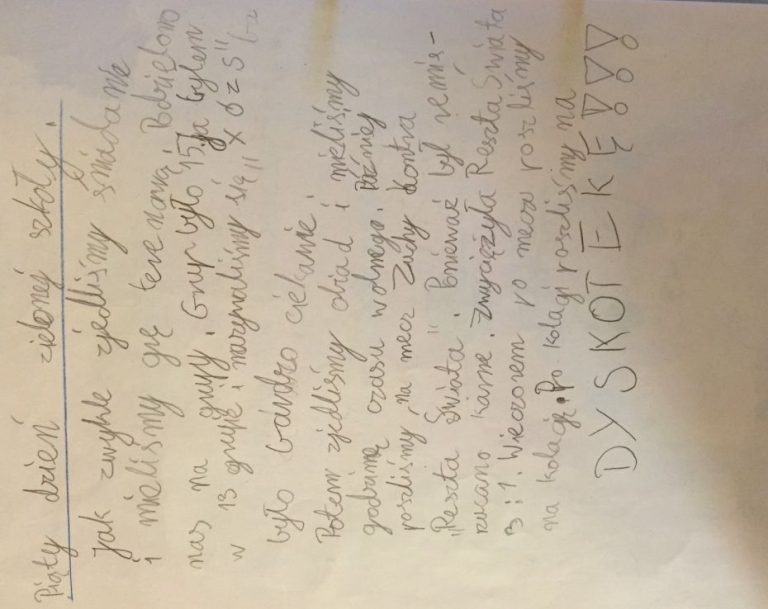 Piąty dzień zielonej szkoły.
Jak zwykle zjedliśmy śniadanie
i mieliśmy grę terenową. Podzielono
nas na grupy. Grup było 15, ja byłem
w 13 grupie i nazywaliśmy się „XÓZS"
było bardzo ciekawie.
Potem zjedliśmy obiad i mieliśmy
godzinę czasu wolnego. Później
poszliśmy na mecz Żudy kontra
„Reszta Świata". Ponieważ był remis-
rzucano karne. Zwyciężyła Reszta Świata
3:1. Wieczorem po meczu poszliśmy
na kolację. Po kolacji poszliśmy na
DYSKOTEKĘ!!!